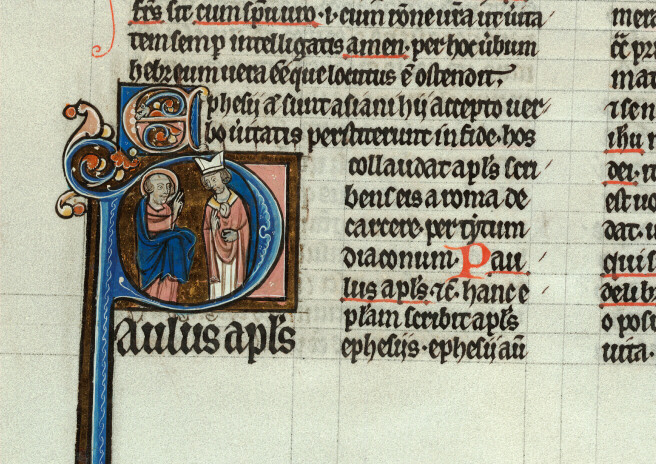 fr̄s sit cum sp̄u uro ·i· cum rōne ur̄a ut uita
tem semp intelligatis amen · per hoc ūbum
hebreum uera eē que locutus ē ostendit
Ephesij aū sunt asiani hij accepto uer
bo ūitatis perstiterunt in fide · hos
collaudat apl̄s scri
bens eis a roma de
carcere · per tytum
diaconum · Pau
lus apl̄s · ⁊c̄ · hanc e
pl̄am scribit apl̄s
ephesijs · ephesij aū
Paulus apl̄s
mera
pri
mat
⁊ sen
ihu
dei ·
est uo
dat ·
qui s
deli br
o posu
uita ·